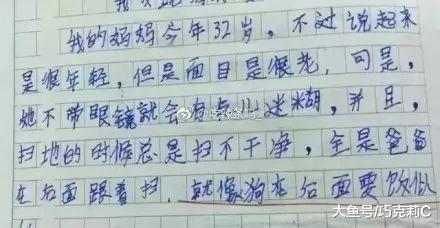 我的妈妈今年32岁，不过说起来
是很年轻，但是面目是很老，可是，
她不带眼镜就会有点儿迷糊，并且，
扫地的时候总是扫不干净，全是爸爸
在后面跟着扫，就像狗在后面要饭似
大鱼号/巧克莉C